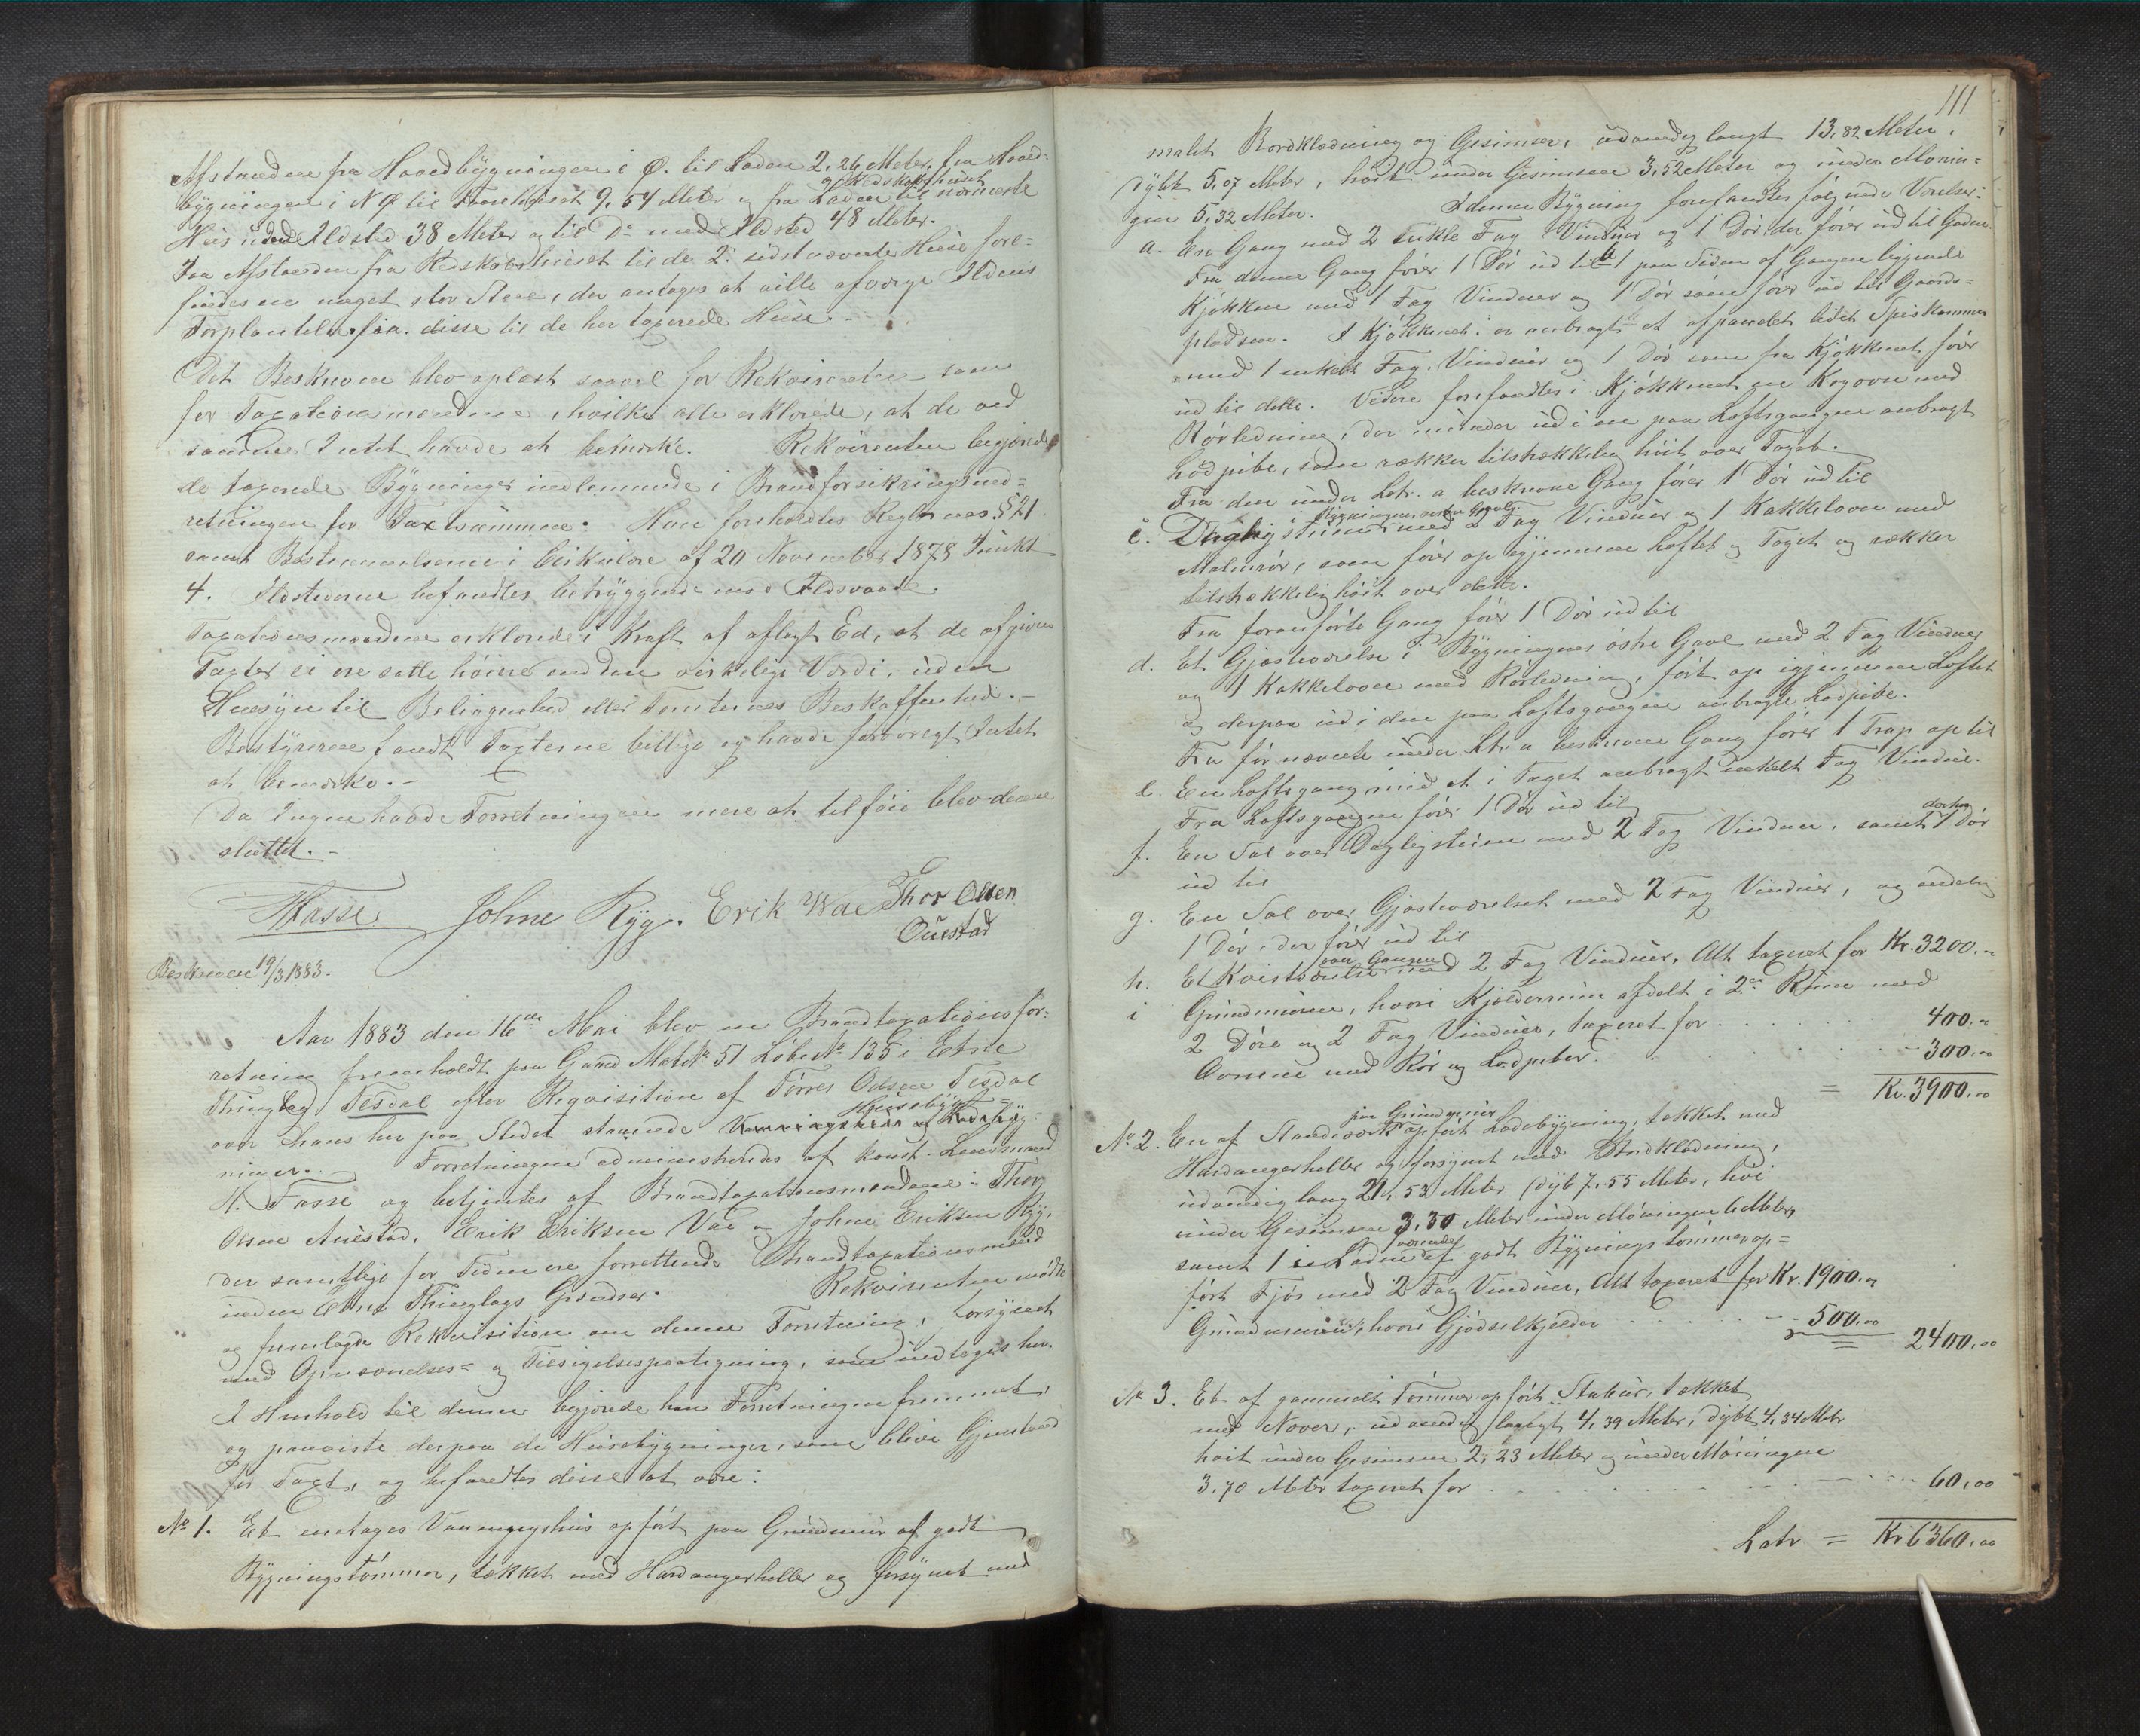 Afstanden fra Hovedbygningen i Ø. til Laden 2,26 Meter, fra Hoved-
bygningen i NØ til Vaanhuset 9,54 Meter og fra Laden og Redskabshuset til nærmeste
Huus uden Ildsted 38 Meter og til Do med Ildsted 48 Meter.
Paa Afstanden fra Redskabshuset til de 2de sidstnævnte Huse fore-
findes en meget stor Steen, der antages at ville afværge Ildens
Forplantelse fra disse til de her taxerede Huse.
Det Beskrevne blev oplæst saavel for Rekvirenten som
for Taxationsmændene, hvilke alle erklærede, at de ved
samme Intet havde at bemærke. Rekvirenten begjærede
de taxerede Bygninger indlemmede i Brandforsikringsind-
retningen for Taxtsummen. Han foreholdtes Reglernes § 21
samt Bestemmelserne i Cirkulære af 20 November 1878 Punkt
4. Ildstederne befandtes betryggende mod Ildsvaade.
Taxationsmændene erklærede i Kraft af aflagt Ed, at de afgivne
Taxter ei ere satte høiere end den virkelige Værdi, uden
Hensyn til Beliggenhed eller Tomternes Beskaffenhed.
Bestyreren fandt Taxterne billige og havde forøvrigt Intet
at bemærke.
Da Ingen havde Forretningen mere at tilføie blev denne
sluttet.
HFasse Johne Ryg. Erik Vae Thor Olsen
Öuestad
Beskreven 19/3 1883.
Aar 1883 den 16de Mai blev en Brandtaxationsfor-
retning fremholdt paa Gaard Matr No 51 Løbe No 135 i Etne
Thinglag Tesdal efter Reqvisition af Tørres Olsen Tesdal
over hans her paa Stedet staaende Vaaningshus og Ladebyg Husebyg-
ninger. Forretningen administreredes af konst. Lensmand
H. Fasse og betjentes af Brandtaxationsmændene: Thor
Olsen Auestad, Erik Eriksen Vae og Johne Eriksen Ryg,
der samtlige for Tiden ere forrettende Brandtaxationsmænd
inden Etne Thinglags Grændser. Rekvirenten mødte
og fremlagde Rekvisition om denne Forretning, forsynet
med Opnævnelses- og Tilsigelsespaategning, som indtages her.
I Henhold til denne begjærede han Forretningen fremmet,
og paaviste derpaa de Husebygninger, som blive Gjenstand
for Taxt, og befandtes disse at være:
No 1. Et enetages Vaaningshus opført paa Grundmur af godt
Bygningstømmer, tækket med Hardangerheller og forsynet med
111
malet Bordklædning og Gesimser, udvendig langt 13,82 Meter,
dybt 5,07 Meter, høit under Gesimsen 3,52 Meter og under Mønin-
gen 5,32 Meter. I denne Bygning forefandtes følgende Værelser:
a. En Gang med 2 enkle Fag Vinduer og 1 Dør, der fører ud til Gaden.
Fra denne Gang fører 1 Dør ud til b 1 paa Siden af Gangen liggende
Kjøkken med 1 Fag Vinduer og 1 Dør som fører ud til Gaards-
pladsen. I Kjøkkenet er anbragt et afpanelet lidet Spiskammer
med 1 enkelt Fag Vinduer og 1 Dør som fra Kjøkkenet fører
ud til dette. Videre forefandtes i Kjøkkenet en Kogovn med
Rørledning, der munder ud i en paa Loftsgangen anbragt
Lodpibe, som rækker tilstrækkelig høit over Taget.
Fra den under Litr. a beskrevne Gang fører 1 Dør ud til
c. Dagligstuen i Bygningens vestre Gavl med 2 Fag Vinduer og 1 Kakkelovn med
Malmrør, som fører op igjennem Loftet og Taget og rækker
tilstrækkelig høit over dette.
Fra foranførte Gang fører 1 Dør ud til
d. Et Gjæsteværelse i Bygningens østre Gavl med 2 Fag Vinduer
og 1 Kakkelovn med Rørledning, ført op igjennem Loftet
og derpaa ud i den paa Loftsgangen anbragte Lodpibe.
Fra førnævnte under Litr. a beskrevne Gang fører 1 Trap op til
e. En Loftsgang med et i Taget anbragt enkelt Fag Vindue.
Fra Loftsgangen fører 1 Dør ud til
f. En Sal over Dagligstuen med 2 Fag Vinduer, samt derfra 1 Dør
ud til
g. En Sal over Gjæsteværelset med 2 Fag Vinduer, og endelig
1 Dør, der fører ud til
h. Et Kvistværelse over Gangen med 2 Fag Vinduer, Alt taxeret for Kr. 3200.-
i Grundmuren, hvori Kjælderrum afdelt i 2de Rum med
2 Døre og 2 Fag Vinduer, taxeret for 400.-
Ovnene med Rør og Lodpiber. 300.00
= Kr. 3900.00
No 2. En af Standværk paa Grundmur opført Ladebygning, tækket med
Hardangerheller og forsynet med Bordklædning,
udvendig lang 21,53 Meter, dyb 7,55 Meter, høi
under Gesimsen 3,30 Meter under Møningen 6 Meter,
samt 1 i Laden værende af godt Bygningstømmer op-
ført Fjøs med 2 Fag Vinduer, Alt taxeret for Kr. 1900.-
Grundmuren, hvori Gjødselkjelder 500.00
= 2400.00
No 3. Et af gammelt Tømmer opført Stabur, tækket
med Never, udvendig langt 4,39 Meter, dybt 4,34 Metr
høit under Gesimsen 2,23 Meter og under Møningen
3,70 Meter taxeret for 60.00
Latr = Kr 6360.00